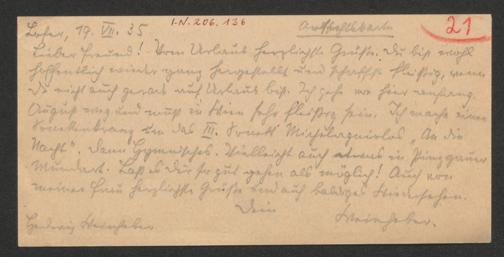 Lofer, 19. VII. 35 I.N. 206.136 Ansichtskarte 21
Lieber Freund! Vom Urlaub herzlichste Grüße. Du bist wohl
hoffentlich wieder ganz hergestellt und schaffst fleißig, wenn
du nicht auch gerade auf Urlaub bist. Ich gehe von hier anfang
August weg und muß in Wien sehr fleißig sein. Ich mache einen
Sonettenkranz um das III. Sonett Michelagniolos "An die
Nacht". Dann Hymnisches. Vielleicht auch etwas in Pinzgauer
Mundart. Laß es dir so gut gehen als möglich! Auch von
meiner Frau herzlichste Grüße und auf baldiges Wiedersehen.
Dein
Hedwig Weinheber Weinheber.